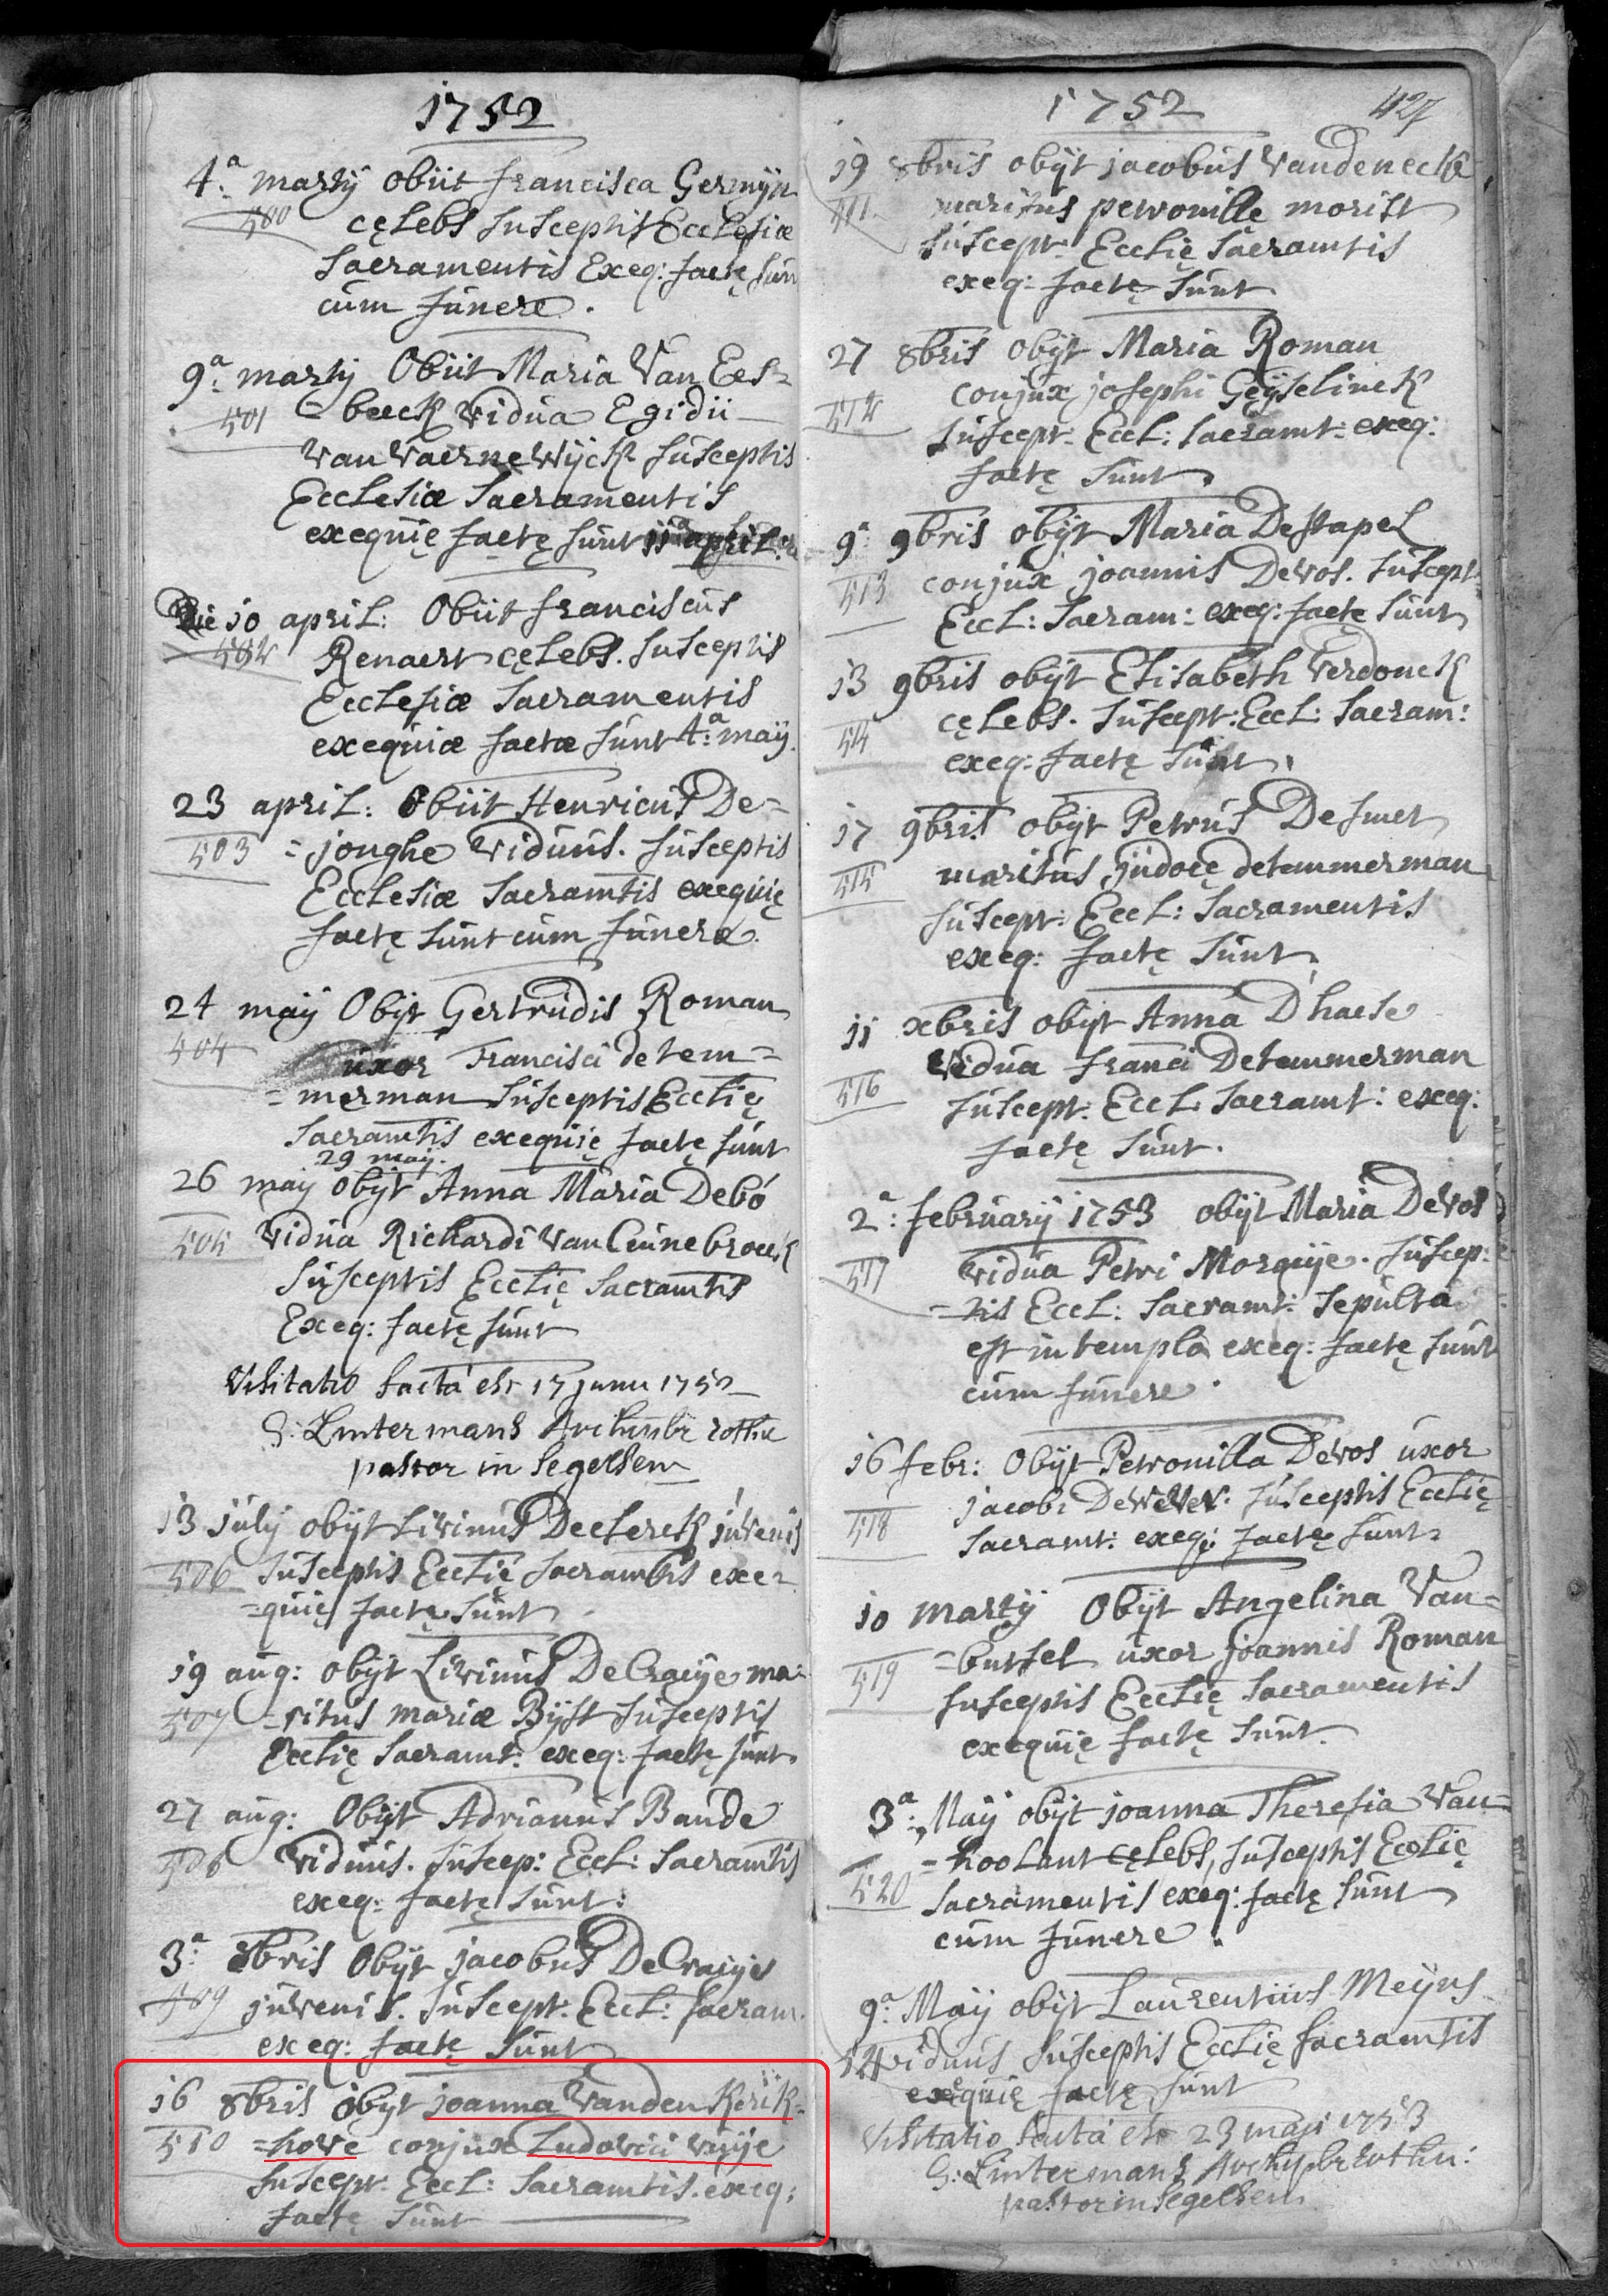 1752
4.a martij obiit francisca Germijn
500 cęlebs susceptis Ecclesiæ
sacramentis Exeq: factę sun
cum funere.
9.a martij Obiit Maria Van Ees=
501 = beeck vidua Egidii
van Vaernewijck susceptis
Ecclesiæ sacramentis
exequię factę sunt
Die 10 april: Obiit franciscus
502 Renaert cęlebs. susceptis
Ecclesiæ sacramentis
exequiæ factæ sunt 4.a maij.
23 april: Obiit Henricus De=
503 =jonghe viduus. susceptis
Ecclesiæ sacramtis exequię
factę sunt cum funere.
24 maij Obijt Gertrudis Roman
504 uxor Francisci detem=
=merman susceptis Ecclię
sacramtis exequię factę sunt
29 maij.
26 maij obijt Anna Maria Debó
505 vidua Richardi van Cuinebroeck
susceptis Ecclię sacramtis
Exeq: factę sunt
Visitatio facta est 17 junii 1752
G: Lintermans Archipbr rothn
pastor in segelsem
13 julij obijt Livinus Declerck juvenis
506 susceptis Ecclię sacramtis exe=
=quię factę sunt
19 aug: obijt Livinus DeCraeije ma=
507 =ritus mariæ Bijst susceptis
Ecclię sacramt: exeq: factę sunt
27 aug: Obijt Adrianus Baude
508 viduus. suscep: Eccl: sacramtis
exeq: factę sunt:
3.a 8bris Obijt jacobus DeCraeije
509 juvenis. suscept: Eccl: sacram.
exeq: factę sunt
16 8bris obijt joanna Vanden Kerik=
510 =hove conjux Ludovici vuije
suscept: Eccl: sacramtis. exeq:
factę sunt
1752 427
19 8bris obijt jacobus Vandenecke
511 maritus petronillę morist
suscept: Ecclię sacramtis
exeq: factę sunt
27 8bris obijt Maria Roman
512 conjux josephi Geijselinck
suscept: Eccl: sacramt: exeq:
factę sunt.
9.a 9bris obijt Maria Destapel
513 conjux joannis Devos. suscept
Eccl: sacram: exeq: factę sunt
13 9bris obijt Elisabeth Verdonck
514 cęlebs. suscept: Eccl: sacram:
exeq: factę sunt.
17 9bris obijt Petrus Desmet
515 maritus judocę detemmerman
suscept: Eccl: sacramentis
exeq: factę sunt
11 xbris obijt Anna D'haese
vidua Franci Detemmerman
516 suscept: Eccl: sacramt: exeq:
factę sunt.
2.a februarij 1753 obijt Maria Devos
517 vidua Petri Morquije. suscep:
=tis Eccl: sacramt: sepulta
est in templo exeq: factę sunt
cum funere.
16 febr: Obijt Petronilla Devos uxor
518 jacobi Dewever. susceptis Ecclię
sacramt: exeq: factę sunt.
10 martij Obijt Angelina Van=
519 =bursel uxor joannis Roman
susceptis Ecclię sacramentis
exequię factę sunt.
3.a Maij obijt joanna Theresia Van=
520 =hoolant cęlebs, susceptis Ecclię
sacramentis exeq: factę sunt
cum funere.
9.a Maij obijt Laurentius Meijns
521 viduus susceptis Ecclię sacramtis
exequię factę sunt
Visitatio facta est 23 maji 1753
G: Lintermans Archipbr rothn:
pastor in segelsem